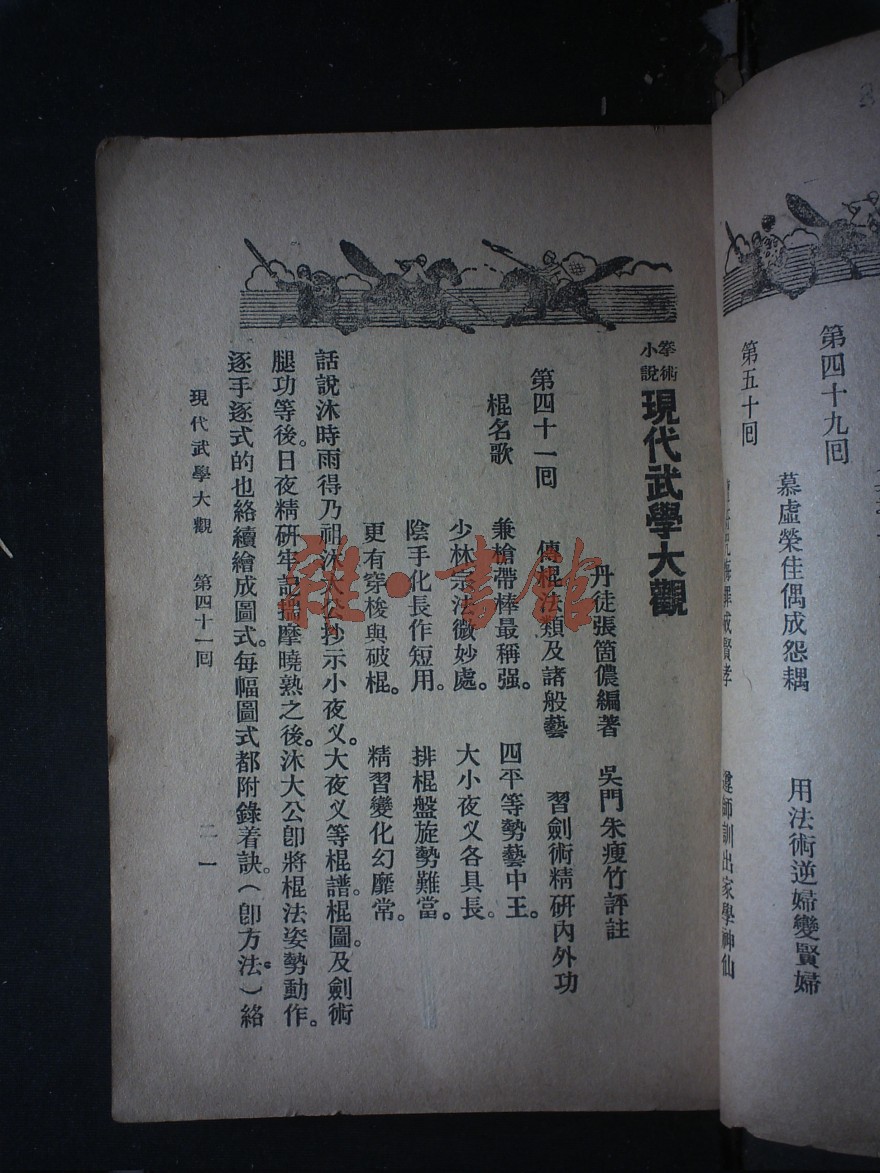 第四十九回　慕虛榮佳偶成怨耦　用法術逆婦變賢婦
第五十回　遵師訓出家學神仙
拳術小說
現代武學大觀
丹徒張箇儂編著　吳門朱瘦竹評註
第四十一回　傳棍法類及諸般藝　習劍術精研內外功
棍名歌　兼槍帶棒最稱强。　四平等勢藝中王。
少林宗法微妙處。　大小夜义各具長。
陰手化長作短用。　排棍盤旋勢難當。
更有穿梭與破棍。　精習變化幻靡常。
話說沐時雨得乃祖沐大公抄示小夜义。大夜义等棍譜。棍圖。及劍術
腿功等後。日夜精研牢記揣摩曉熟之後。沐大公卽將棍法姿勢動作。
逐手逐式的也絡續繪成圖式。每幅圖式都附錄着訣。（卽方法。）絡
現代武學大觀　第四十一回　二一
雜·書館